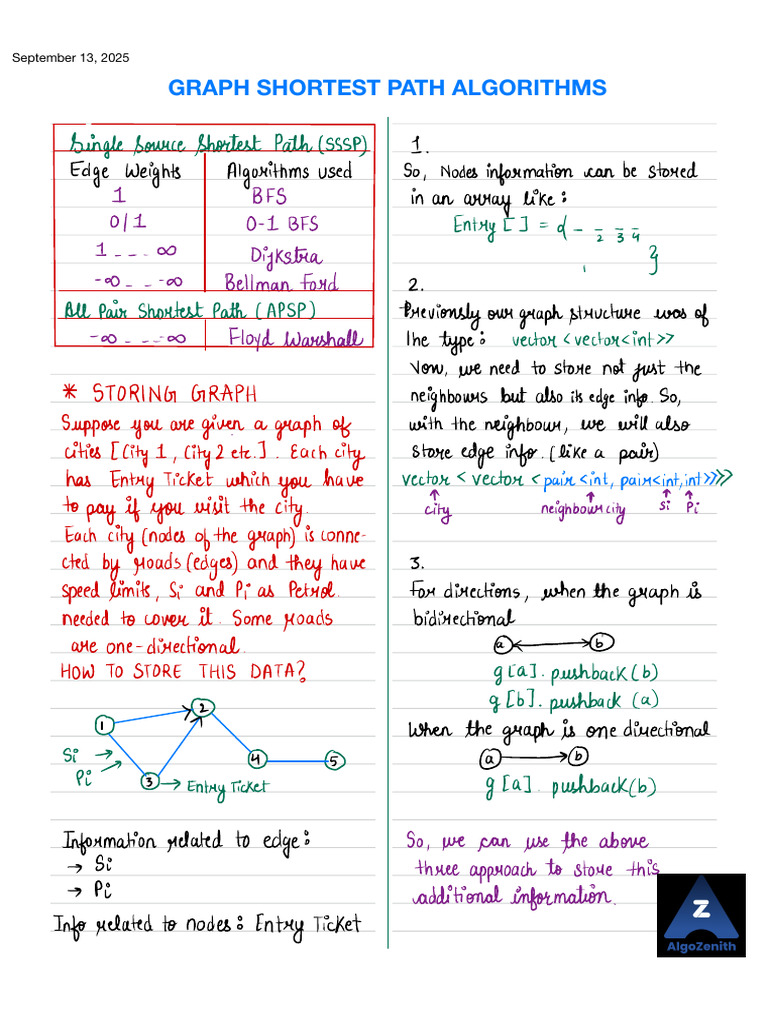 September 13, 2025
GRAPH SHORTEST PATH ALGORITHMS
Single Source Shortest Path (SSSP)
Edge Weights Algorithms used
1 BFS
0/1 0-1 BFS
1 - - - ∞ Dijkstra
-∞ - - -∞ Bellman Ford
All Pair Shortest Path (APSP)
-∞ - - -∞ Floyd Warshall
* STORING GRAPH
Suppose you are given a graph of
cities [City 1, City 2 etc.]. Each city
has Entry Ticket which you have
to pay if you visit the city.
Each city (nodes of the graph) is conne-
cted by roads (edges) and they have
speed limits, Si and Pi as Petrol
needed to cover it. Some roads
are one-directional.
HOW TO STORE THIS DATA?
1
2
3
4
5
Si
Pi
Entry Ticket
Information related to edge:
→ Si
→ Pi
Info related to nodes: Entry Ticket
1.
So, Nodes information can be stored
in an array like:
Entry [ ] = { - - - -
2 3 4
}
2.
Previously our graph structure was of
the type: vector <vector<int>>
Now, we need to store not just the
neighbours but also its edge info. So,
with the neighbour, we will also
store edge info. (like a pair)
vector < vector < pair <int, pair<int,int>>>>
city neighbour city Si Pi
3.
For directions, when the graph is
bidirectional
a b
g[a]. pushback (b)
g[b]. pushback (a)
When the graph is one directional
a b
g[a]. pushback(b)
So, we can use the above
three approach to store this
additional information.
Z
AlgoZenith